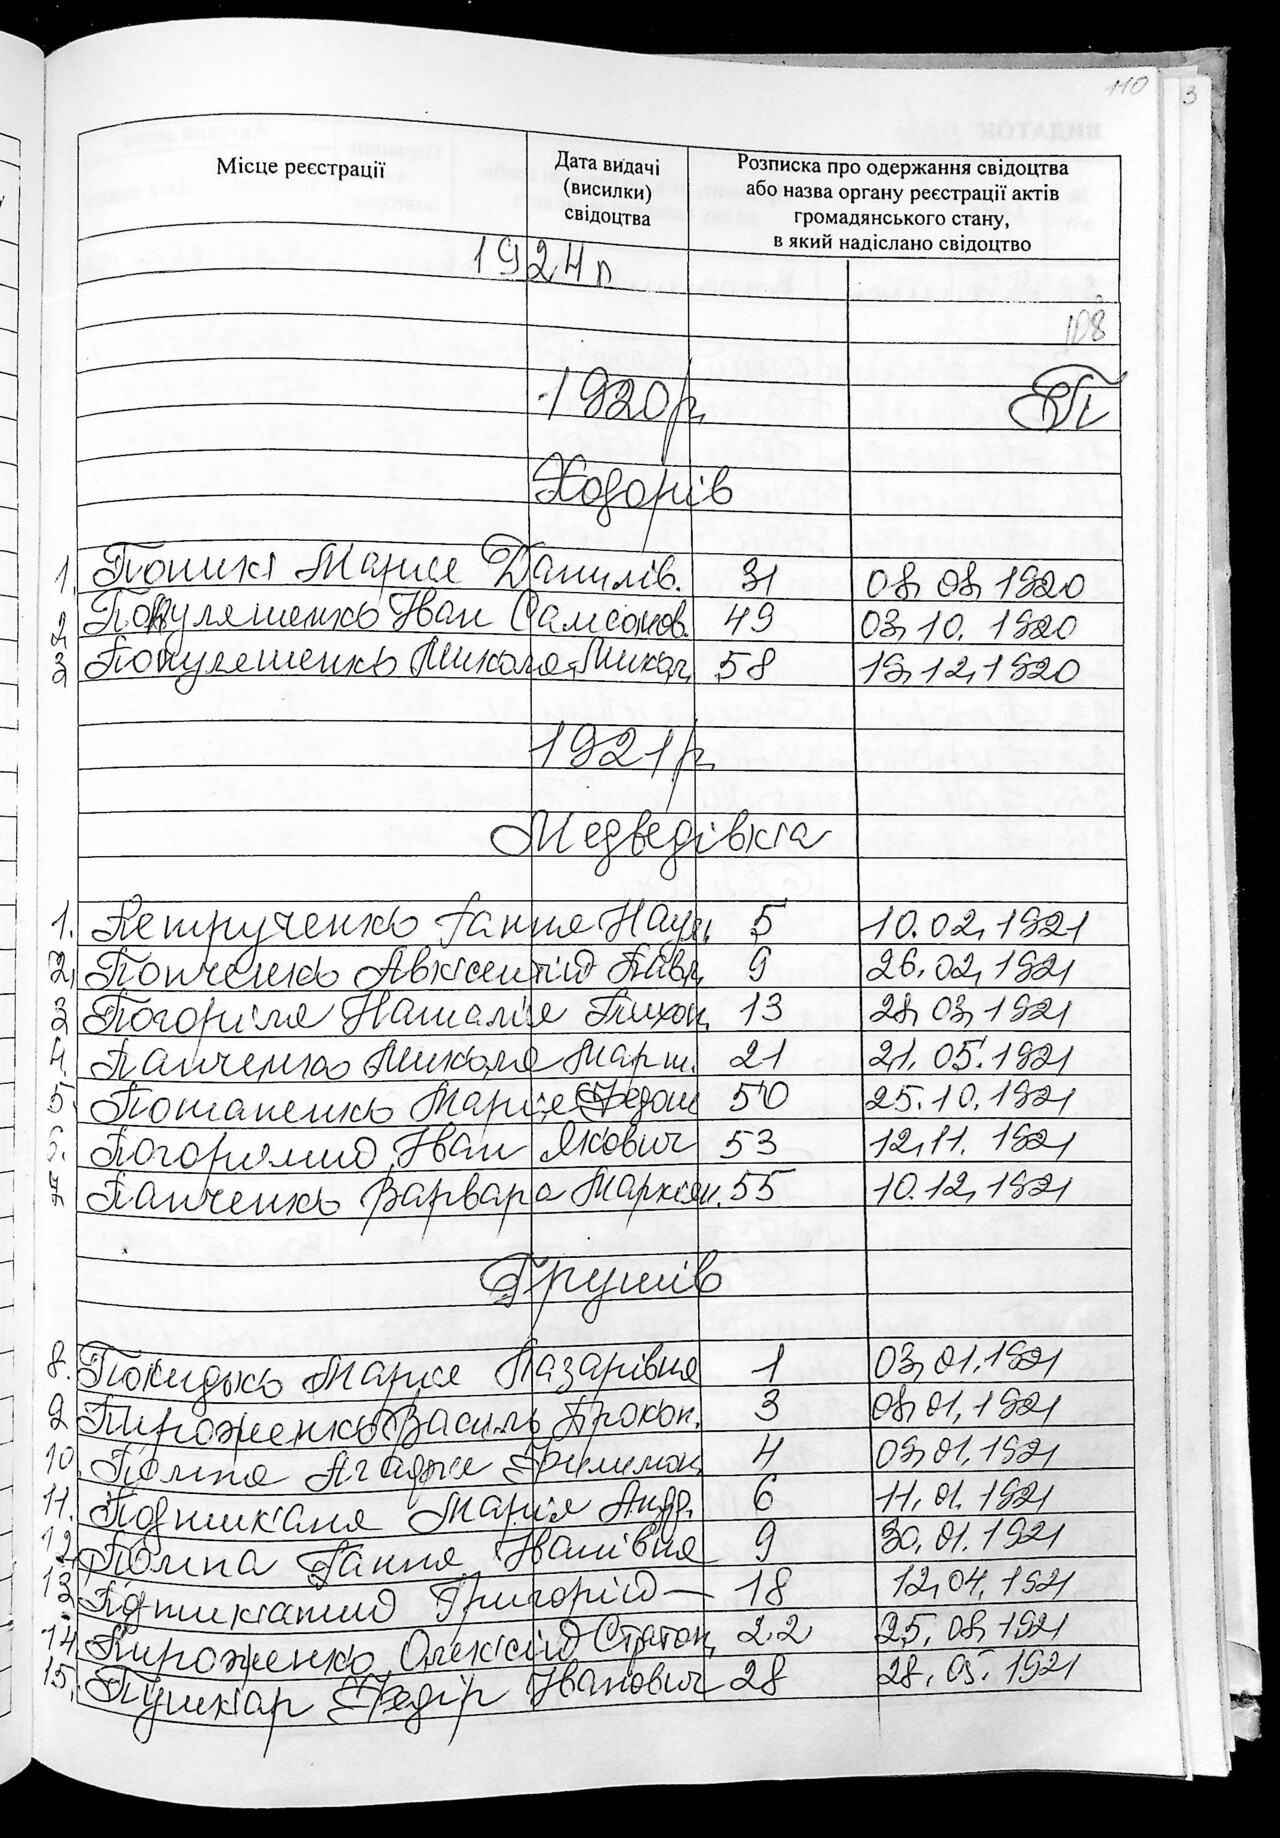 110
3
Місце реєстрації
Дата видачі
(висилки)
свідоцтва
Розписка про одержання свідоцтва
або назва органу реєстрації актів
громадянського стану,
в який надіслано свідоцтво
1924 р
108
1920 р.
"П"
Ходорів
1. Марія Данилів. 31 08.08.1920
2 Іван Самсонов. 49 03.10.1920
3 Микола Микол. 58 19.12.1920
1921 р.
Медведівка
1. Петрученко Ганна Наум. 5 10.02.1921
2. Попченко Авксентій Павл. 9 26.02.1921
3 Погоріла Наталія Тихон. 13 28.03.1921
4. Панченко Микола Март. 21 21.05.1921
5. Потапенко Марія Федот 50 25.10.1921
6. Погорілий Іван Якович 53 12.11.1921
7 Панченко Варвара Маркіян. 55 10.12.1921
Грушів
8. Покидько Марія Назарівна 1 03.01.1921
9 Пироженко Василь Прокоп. 3 08.01.1921
10. Помпа Агафія Филимон. 4 09.01.1921
11. Підтикана Марія Андр. 6 11.01.1921
12. Помпа Ганна Іванівна 9 30.01.1921
13. Підтиканий Григорій — 18 12.04.1921
14. Пироженко Олексій Статон. 22 25.08.1921
15. Пушкар Федір Іванович 28 28.05.1921